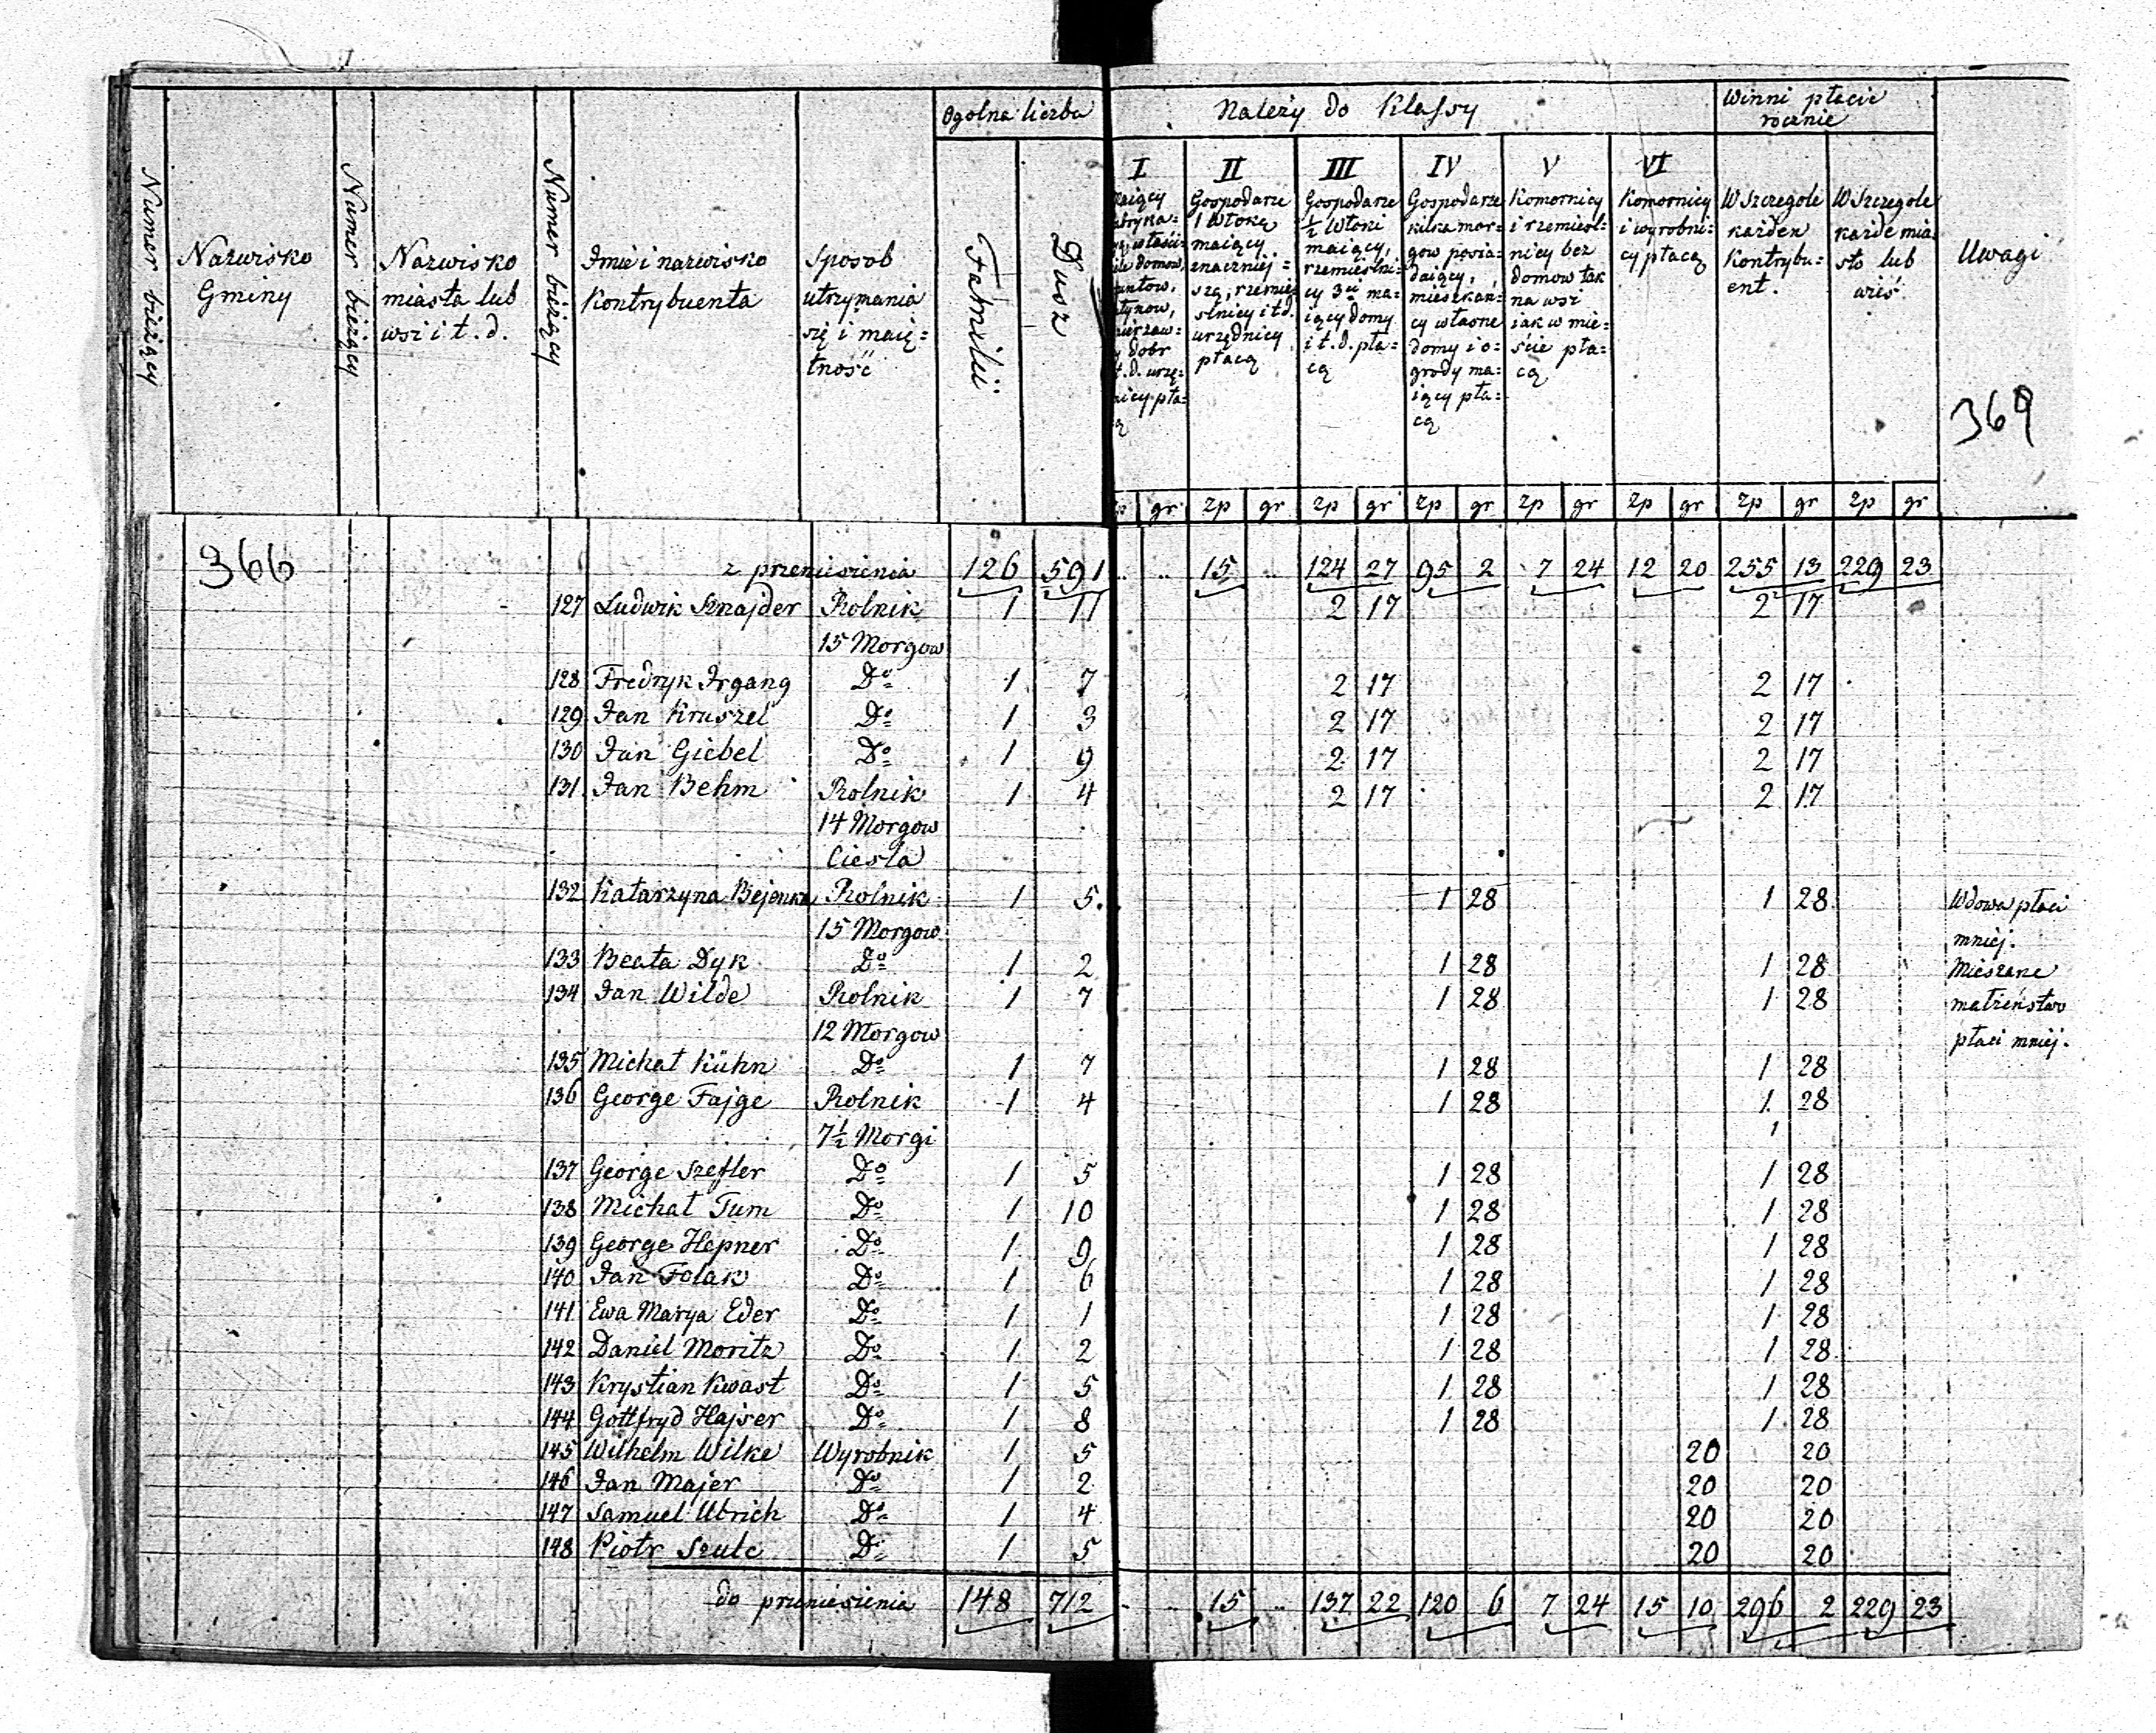 Numer bieżący
Nazwisko
Gminy
Numer bieżący
Nazwisko
miasta lub
wsi i t. d.
Numer bieżący
Imie i nazwisko
Kontrybuenta
Sposob
utrzymania
się i maię=
tność
Ogolna liczba
Familii
Dusz
Należy do Klassy
I
dobr
II
Gospodarze
1 Włokę
maiący
znaczniej=
szą, rzemie
slnicy i t d.
urzędnicy
płacą
III
Gospodarze
½ Włoki
maiący,
rzemieślni-
cy 3ci ma=
iący domy
i t. d. pła=
cą
IV
Gospodarze
kilka mor=
gow posia=
daiący,
mieszkań=
cy własne
domy i o=
grody ma=
iący pła=
cą
V
Komornicy
i rzemieśl=
nicy bez
domow tak
na wsi
iak w mie=
ście pła=
cą
VI
Komornicy
i wyrobni=
cy płacą
Winni płacić
rocznie
W Szczegole
każden
Kontrybu=
ent.
W Szczegole
każde mia
sto lub
wieś
Uwagi
369
gr zp gr zp gr zp gr zp gr zp gr zp gr zp gr
366
z przeniesienia 126 591 .. .. 15 .. 124 27 95 2 7 24 12 20 255 13 229 23
127 Ludwik Sznajder Rolnik 1 11 2 17 2 17
15 Morgow
128 Fredryk Irgang Do 1 7 2 17 2 17
129 Jan Kruszel Do 1 3 2 17 2 17
130 Jan Giebel Do 1 9 2 17 2 17
131 Jan Behm Rolnik 1 4 2 17 2 17
14 Morgow
Ciesla
132 Katarzyna Rolnik 1 5 1 28 1 28 Wdowa płaci
15 Morgow mniej.
133 Beata Dyk Do 1 2 1 28 1 28 Mieszane
134 Jan Wilde Rolnik 1 7 1 28 1 28 małżeństwo
12 Morgow płaci mniej.
135 Michał Kühn Do 1 7 1 28 1 28
136 George Fajge Rolnik 1 4 1 28 1 28
7½ Morgi
137 George Szefler Do 1 5 1 28 1 28
138 Michał Tum Do 1 10 1 28 1 28
139 George Hepner Do 1 9 1 28 1 28
140 Jan Folak Do 1 6 1 28 1 28
141 Ewa Marya Eder Do 1 1 1 28 1 28
142 Daniel Moritz Do 1 2 1 28 1 28
143 Krystian Kwast Do 1 5 1 28 1 28
144 Gottfryd Hajser Do 1 8 1 28 1 28
145 Wilhelm Wilke Wyrobnik 1 5 20 20
146 Jan Majer Do 1 2 20 20
147 Samuel Ulrich Do 1 4 20 20
148 Piotr Szulc Do 1 5 20 20
do przeniesienia 148 712 .. .. 15 .. 137 22 120 6 7 24 15 10 296 2 229 23